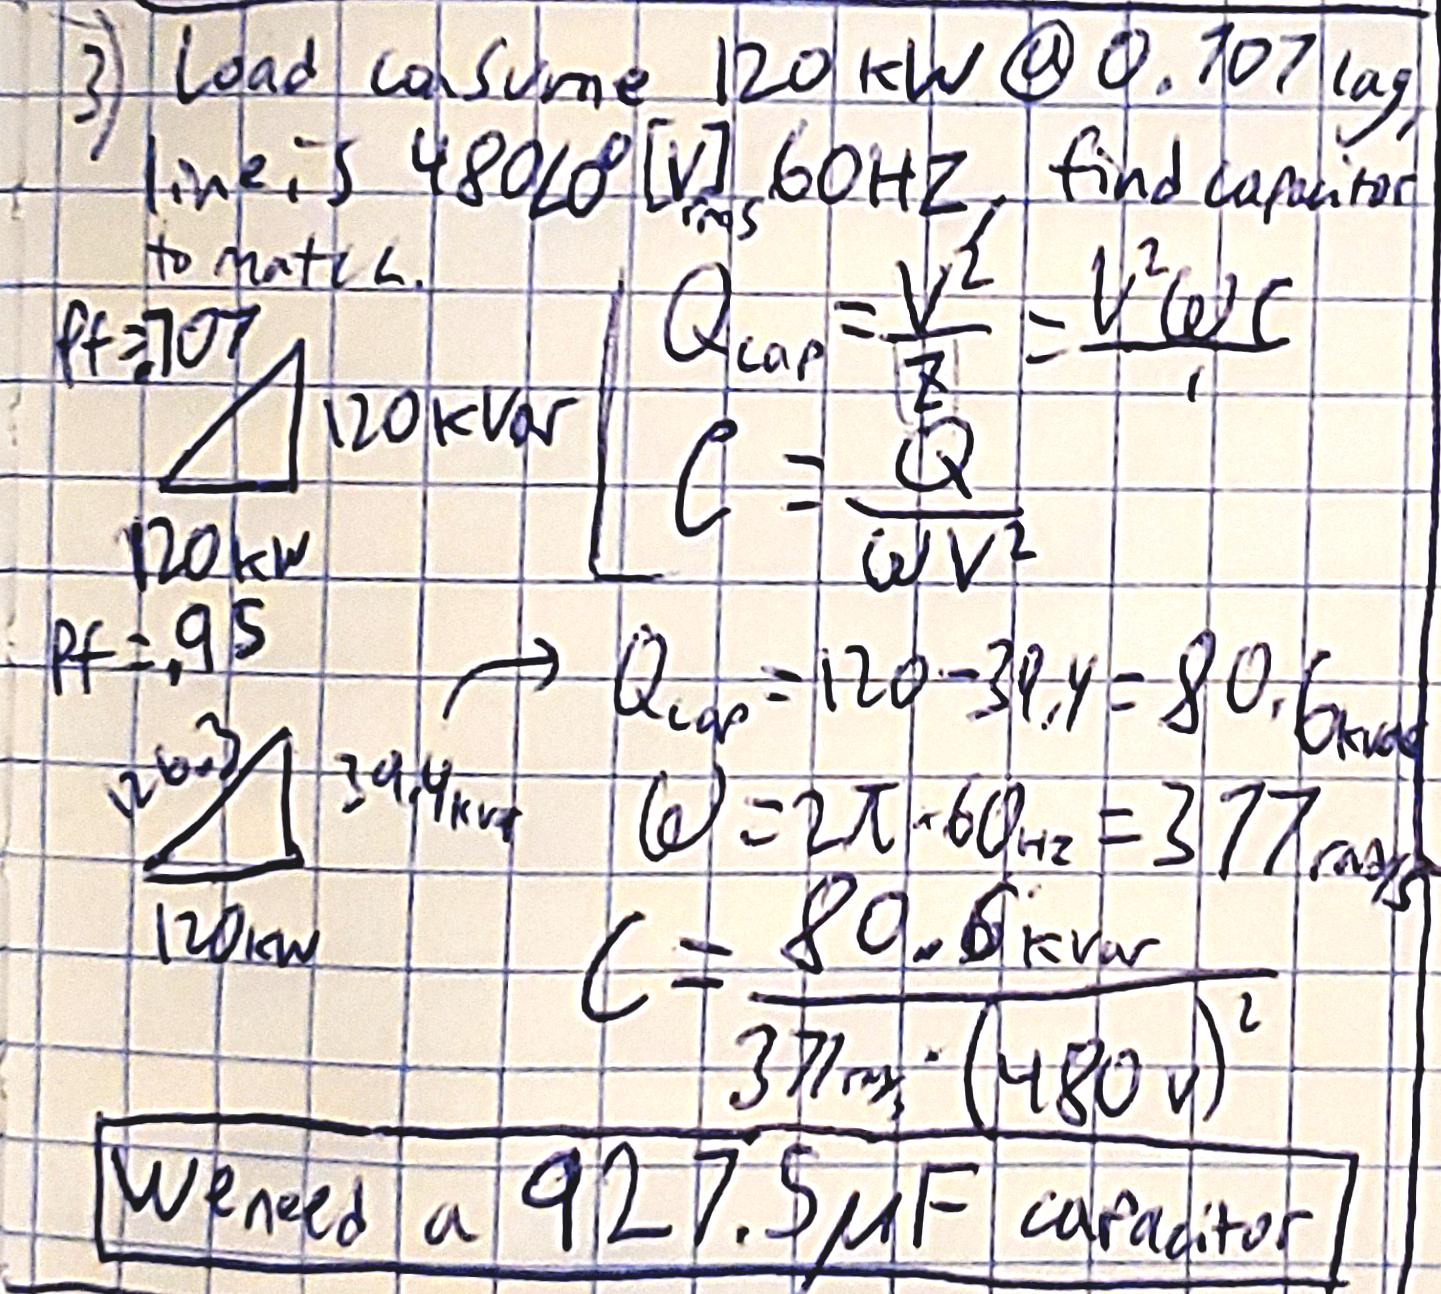 3) Load consume 120 kW @ 0.707 lag,
line is 480∠0° [V]rms 60HZ, find capacitor
to match.
Pf = .707
120 kVar
120 kW
Qcap = V²/Z = V²ωC/1
C = Q/ωV²
Pf = .95
126.3
39.4 kvar
120 kW
Qcap = 120 - 39.4 = 80.6 kvar
ω = 2π·60Hz = 377 rad/s
C = 80.6 kVar / 377 rad/s · (480 v)²
We need a 927.5 μF capacitor